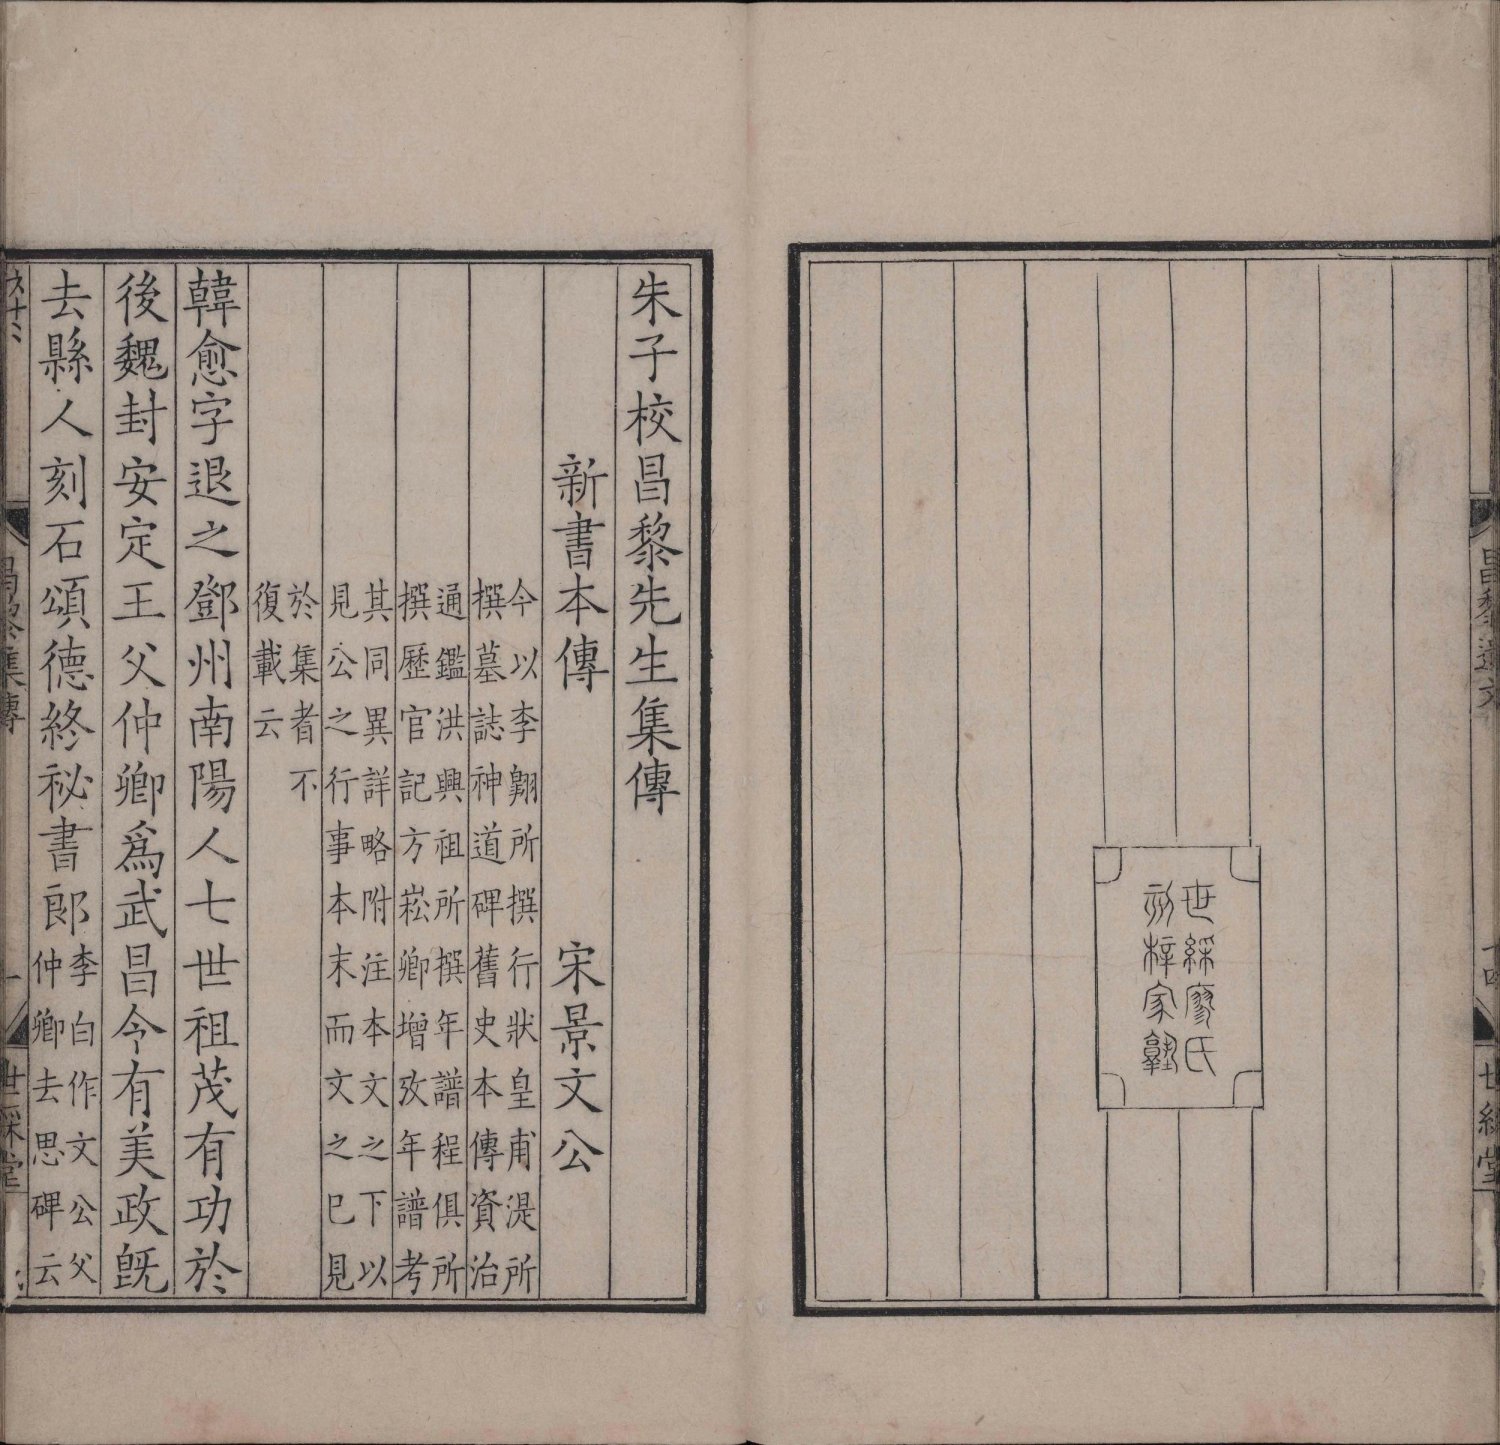 昌黎遺文
十四
世綵堂
世綵廖氏
刻梓家塾
朱子校昌黎先生集傳
新書本傳　宋景文公
今以李翺所撰行狀皇甫湜所
撰墓誌神道碑舊史本傳資治
通鑑洪興祖所撰年譜程俱所
撰歷官記方崧卿增攷年譜考
其同異詳略附注本文之下以
見公之行事本末而文之巳見
於集者不
復載云
韓愈字退之鄧州南陽人七世祖茂有功於
後魏封安定王父仲卿爲武昌令有美政旣
去縣人刻石頌德終祕書郎
李白作文公父
仲卿去思碑云
昌黎集傳
一
世綵堂